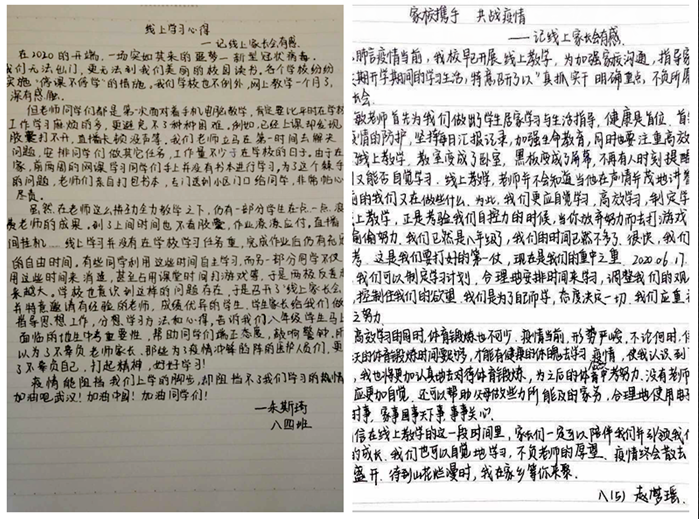 线上学习心得
——记线上家长会有感
在2020的开端,一场突如其来的噩梦—新型冠状病毒。
我们无法出门,更无法到我们美丽的校园读书,各个学校纷纷
实施"停课不停学"的措施,我们学校也不例外,网上教学一个月了,
深有感触。
但老师同学们都是第一次面对着手机电脑教学,肯定要比平时在学校
工作学习麻烦的多,更避免不了种种困难,例如,已经上课却发现
胶囊打不开,直播长顿没声等,我们老师立马在第一时间去解决
问题,安排同学们做其它任务,工作量不少于在学校的日子。由于在
家,前两周的网课学习同学们手上并没有书本进行学习,为了这个棘手
的问题,老师们亲自打包书本,专门送到小区门口给同学,非常的心
尽责。
虽然在老师这么努力全力教学之下,仍有一部分学生在一点一点浪
费老师的成果,到了上网时间也不看胶囊,作业潦潦应付,直播
间挂机……线上学习并没有在学校学习任务重,完成作业后仍有充足
的自由时间,有些同学利用这些时间自主学习,而另一部分同学不仅
用这些时间来消遣,甚至占用课堂时间打游戏等,于是两极分差越
来越大。学校也意识到这样的问题存在,于是召开了"线上家长会"
并特意邀请有经验的老师,成绩优异的学生,学生家长给我们做
指导思想工作,分享学习方法和心得,告诉我们八年级学生马上
面临的位生中考重要性,帮助同学们端正态度,敲响警钟,所
以为了不辜负老师家长,那些为了疫情冲锋的阵的医护人员们,更
了不辜负自己,打起精神,好好学习!
疫情能阻挡我们上学的脚步,却阻挡不了我们学习的热情
加油吧武汉!加油中国!加油同学们!
—朱斯琦
八四班
家校携手 共战疫情
——记线上家长会有感
疫情当前,我校早已开展线上教学,为加强家校沟通,指导家
期开学期间的学习生活,特意召开了以"真抓实干 明确重点,不负所
长会。
敏老师首先为我们做出学生居家学习与生活指导,健康是首位,首
疫情的防护,坚持每日汇报记录,加强生命教育,同时也要注重高效
线上教学,教室变成了卧室,黑板变成了屏幕,不再有人时刻提醒
又能否自觉学习。线上教学,老师并不会知道当他在声情并茂地讲
的我们又在做些什么。为此,我们更应自觉学习、高效学习,制定学
上教学,正是考验我们自控力的时候,当你放弃努力而去打游戏
偷偷努力。我们已然是八年级了,我们的时间已然不多了。很快,我们
考。这是我们要打好的第一仗,现在是我们的重中之重。2020.06.17.
我们可以制定学习计划,合理地安排时间来学习,调整我们的观
控制住我们的欲望,我们是为了自己而学,态度决定一切,我们应重
之努力.
高效学习的同时,体育锻炼也不可少.疫情当前,形势严峻,不论何时,
天的体育锻炼时间要好,才能有健康的体魄去学习疫情,使我认识到
,我也将更加认真地去对待体育锻炼,为之后的体育中考努力.没有老师
应更加自觉.还可以帮助父母做些力所能及的家务,合理地使用
时事,家事国事天下事,事事关心.
信在线上教学的这一段时间里,家长们一定可以陪伴我们并引领我们
的成长.我们也可以自觉地学习,不负老师的厚望.疫情终会散去
盛开.待到山花烂漫时,我在家乡等你来聚.
八(5) 赵梦瑶.